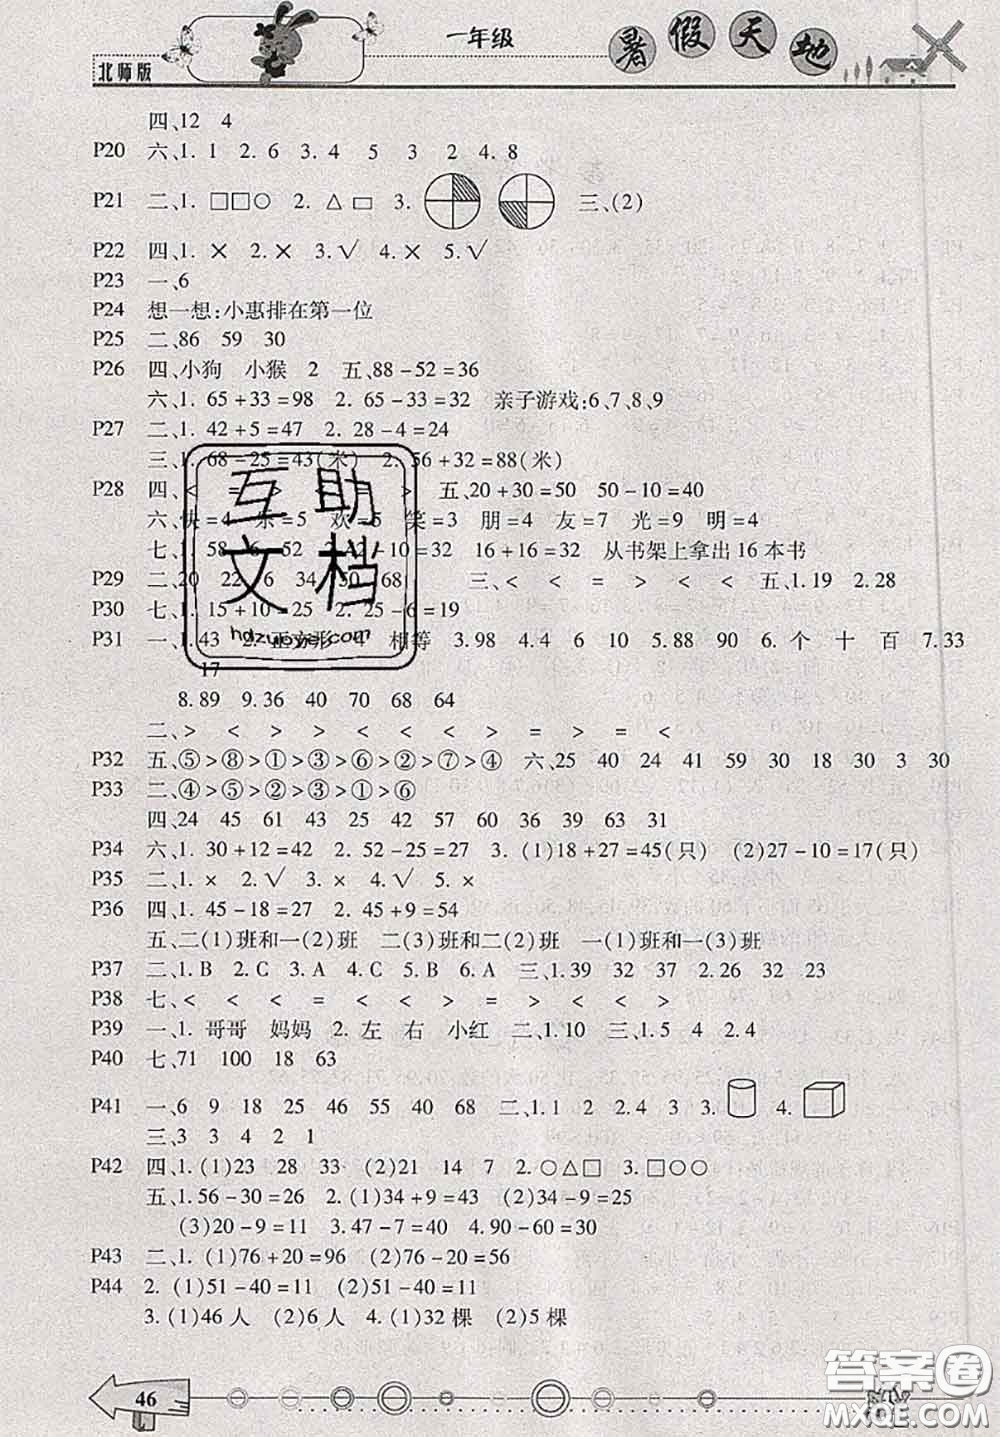 一年级
暑假天地
北师版
四、12 4
P20 六、1. 1 2. 6 3. 4 5 3 2 4. 8
P21 二、1. □□○ 2. △ ▭ 3. 三、(2)
P22 四、1. × 2. × 3. √ 4. × 5. √
P23 一、6
P24 想一想:小惠排在第一位
P25 二、86 59 30
P26 四、小狗 小猴 2 五、88-52=36
六、1. 65+33=98 2. 65-33=32 亲子游戏:6、7、8、9
P27 二、1. 42+5=47 2. 28-4=24
三、1. 68-25=43(米) 2. 56+32=88(米)
P28 四、< = > < = > 五、20+30=50 50-10=40
六、快=4 乐=5 欢=5 笑=3 朋=4 友=7 光=9 明=4
七、1. 58 6 52 2. 42-10=32 16+16=32 从书架上拿出16本书
P29 二、20 22 6 34 50 68 三、< < = > < < 五、1.19 2.28
P30 七、1. 15+10=25 2. 25-6=19
P31 一、1.43 2. 正方形 4 相等 3.98 4.4 6 10 5.88 90 6. 个 十 百 7.33
17
8.89 9.36 40 70 68 64
二、> < > > < < > < > = > = <
P32 五、⑤>⑧>①>③>⑥>②>⑦>④ 六、25 40 24 41 59 30 18 30 3 30
P33 二、④>⑤>②>③>①>⑥
四、24 45 61 43 25 42 57 60 36 39 63 31
P34 六、1. 30+12=42 2. 52-25=27 3. (1)18+27=45(只) (2)27-10=17(只)
P35 二、1. × 2. √ 3. × 4. √ 5. ×
P36 四、1. 45-18=27 2. 45+9=54
五、二(1)班和一(2)班 二(3)班和二(2)班 一(1)班和一(3)班
P37 二、1. B 2. C 3. A 4. C 5. B 6. A 三、1.39 32 37 2.26 32 23
P38 七、< < < = < < > = > < < >
P39 一、1. 哥哥 妈妈 2. 左 右 小红 二、1.10 三、1.5 4 2.4
P40 七、71 100 18 63
P41 一、6 9 18 25 46 55 40 68 二、1.1 2 2.4 3 3. 4.
三、3 3 4 2 1
P42 四、1. (1)23 28 33 (2)21 14 7 2.○△□ 3.□○○
五、1.56-30=26 2. (1)34+9=43 (2)34-9=25
(3)20-9=11 3.47-7=40 4.90-60=30
P43 二、1. (1)76+20=96 (2)76-20=56
P44 2. (1)51-40=11 (2)51-40=11
3. (1)46人 (2)6人 4. (1)32棵 (2)5棵
46
互助文档
hdzuoye.com
答案圈
MXQE.COM